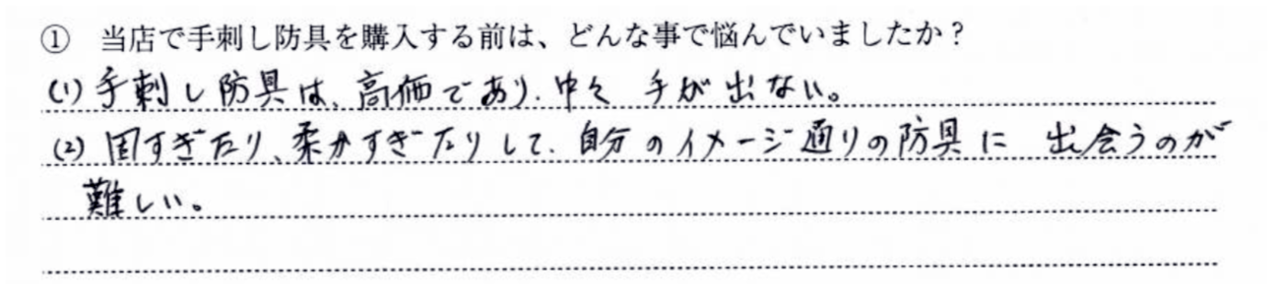 ① 当店で手刺し防具を購入する前は、どんな事で悩んでいましたか？
(1) 手刺し防具は、高価であり、中々 手が出ない。
(2) 固すぎたり、柔かすぎたりして、自分のイメージ通りの防具に 出会うのが
難しい。